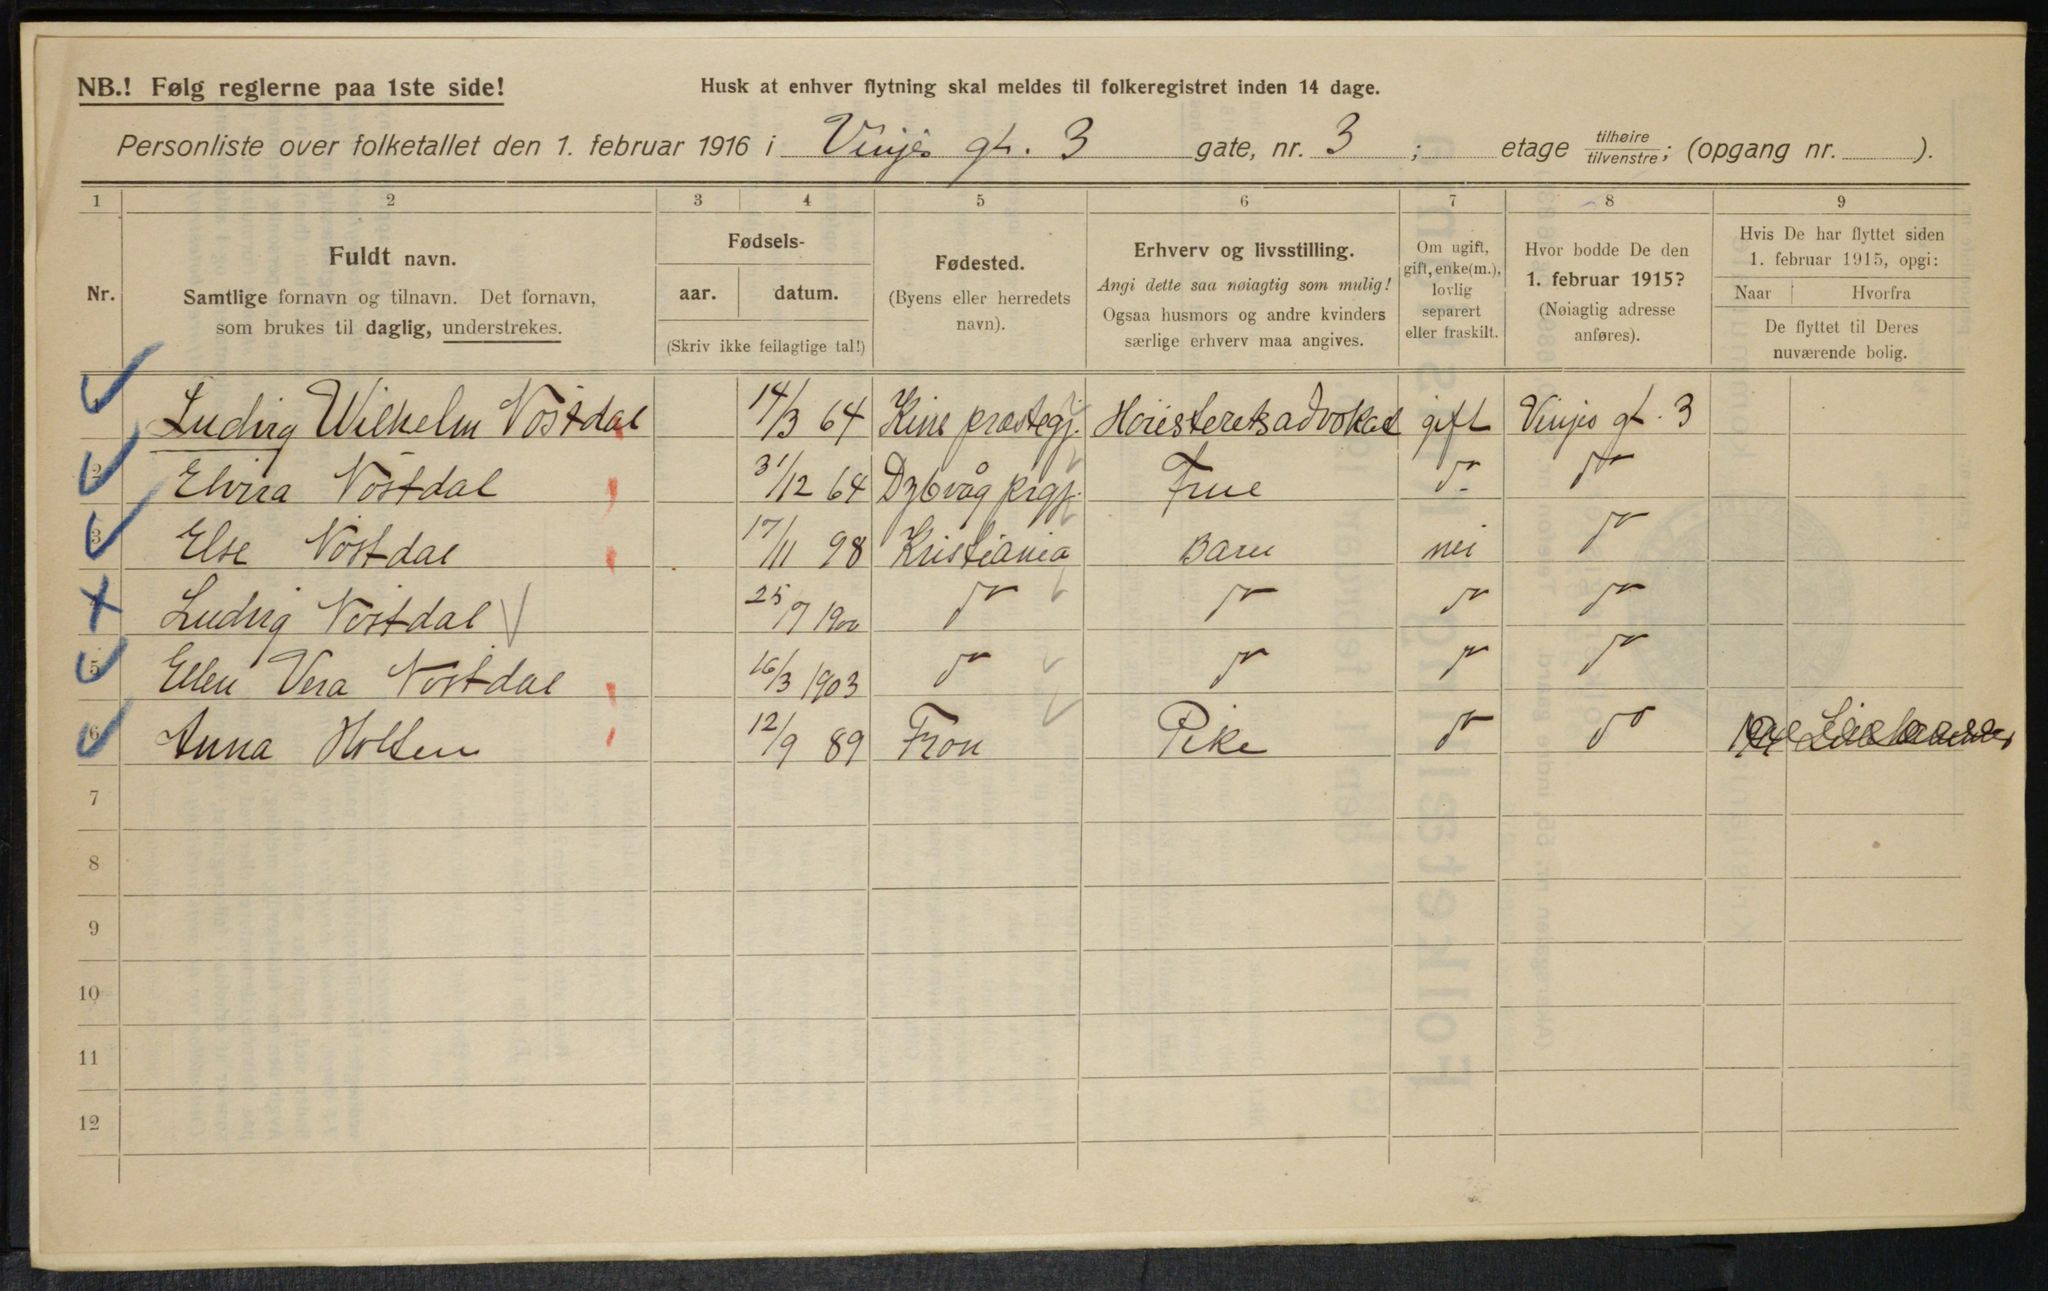 NB.! Følg reglerne paa 1ste side!
Husk at enhver flytning skal meldes til folkeregistret inden 14 dage.
Personliste over folketallet den 1. februar 1916 i Vinjes gt. 3 gate, nr. 3 ; etage tilhøire/tilvenstre; (opgang nr. ).
1 2 3 4 5 6 7 8 9
Nr.
Fuldt navn.
Samtlige fornavn og tilnavn. Det fornavn,
som brukes til daglig, understrekes.
Fødsels-
aar. datum.
(Skriv ikke feilagtige tal!)
Fødested.
(Byens eller herredets
navn).
Erhverv og livsstilling.
Angi dette saa nøiagtig som mulig!
Ogsaa husmors og andre kvinders
særlige erhverv maa angives.
Om ugift,
gift, enke(m.),
lovlig
separert
eller fraskilt.
Hvor bodde De den
1. februar 1915?
(Nøiagtig adresse
anføres).
Hvis De har flyttet siden
1. februar 1915, opgi:
Naar Hvorfra
De flyttet til Deres
nuværende bolig.
1 Ludvig Wilhelm Nostdal 14/3 64 præstegj. Høiesteretsadvokat gift Vinjes gt. 3
2 Elvira Nostdal 31/12 64 Dybvåg prgj. Frue do do
3 Else Nostdal 17/11 98 Kristiania Barn nei do
Ludvig Nostdal 25/9 1900 do do do do
5 Ellen Vera Nostdal 16/3 1903 do do do do
6 Anna Holten 12/9 89 Fron Pike do do
7
8
9
10
11
12